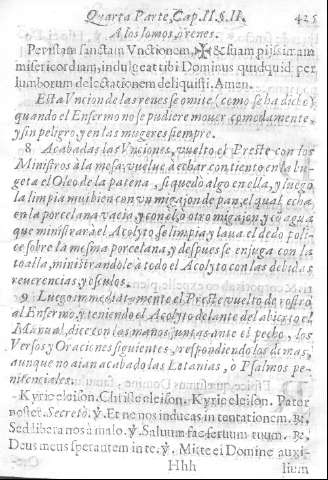 Quarta Parte, Cap. II. §. II. 425
A los lomos, ò renes.
Per istam sanctam Vnctionem, ✠ & suam pijssimam
misericordiam, indulgeat tibi Dominus quidquid per
lumborum delectationem deliquisti. Amen.
Esta Vncion de las renes se omite (como se ha dicho)
quando el Enfermo no se pudiere mouer comodamente,
y sin peligro, y en las mugeres siempre.
8 Acabadas las Vnciones, vuelto el Preste con los
Ministros à la mesa, vuelue à echar con tiento en la bu-
geta el Oleo de la patena, si quedo algo en ella, y luego
la limpia mui bien con vn migajon de pan, el qual echa
en la porcelana vacia, y con el, ò otro migajon, y co agua
que ministrarà el Acolyto se limpia y laua el dedo pol-
ce sobre la mesma porcelana, y despues se enjuga con la
toalla, ministrandole à todo el Acolyto con las debidas
reuerencias, y osculos.
9 Luego immediatamente el Preste vuelto de rostro
al Enfermo, y teniendo el Acolyto delante del abierto el
Manual, dice con las manos juntas ante el pecho, los
Versos y Oraciones siguientes, respondiendo los demas,
aunque no aian acabado las Letanias, o Psalmos pe-
nitenciales.
Kyrie eleison. Christe eleison. Kyrie eleison. Pater
noster. Secretò. ℣. Et ne nos inducas in tentationem. ℟.
Sed libera nos à malo. ℣. Saluum fac seruum tuum. ℟.
Deus meus sperantem in te. ℣. Mitte ei Domine auxi-
Hhh lium